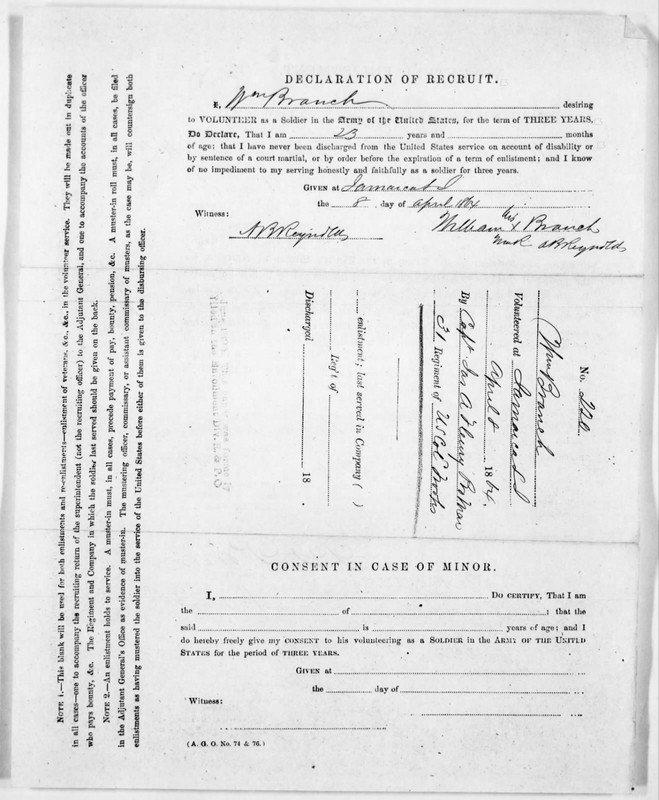 DECLARATION OF RECRUIT.
I, Wm Branch desiring
to VOLUNTEER as a Soldier in the Army of the United States, for the term of THREE YEARS,
Do Declare, That I am 23 years and months
of age; that I have never been discharged from the United States service on account of disability or
by sentence of a court martial, or by order before the expiration of a term of enlistment; and I know
of no impediment to my serving honestly and faithfully as a soldier for three years.
GIVEN at Jamaica L I
the 8 day of April 1864
Witness:
A B Reynolds
William his x Branch
mark A B Reynolds
No.
Wm Branch
Volunteered at Jamaica L I
April 8 1864
By Capt Jas A Pro Mar
31 Regiment of U S Col Troops
enlistment; last served in Company ( )
Reg't of
Discharged 18
CONSENT IN CASE OF MINOR.
I, DO CERTIFY, That I am
the of ; that the
said is years of age; and I
do hereby freely give my CONSENT to his volunteering as a SOLDIER in the ARMY OF THE UNITED
STATES for the period of THREE YEARS.
GIVEN at
the day of
Witness:
(A. G. O. No. 74 & 76.)
NOTE 1.—This blank will be used for both enlistments and re-enlistments—enlistment of veterans, &c., &c., in the volunteer service. They will be made out in duplicate
in all cases—one to accompany the recruiting return of the superintendent (not the recruiting officer) to the Adjutant General, and one to accompany the accounts of the officer
who pays bounty, &c. The Regiment and Company in which the soldier last served should be given on the back.
NOTE 2.—An enlistment holds to service. A muster-in must, in all cases, precede payment of pay, bounty, pension, &c. A muster-in roll must, in all cases, be filed
in the Adjutant General's Office as evidence of muster-in. The mustering officer, commissary, or assistant commissary of musters, as the case may be, will countersign both
enlistments as having mustered the soldier into the service of the United States before either of them is given to the disbursing officer.